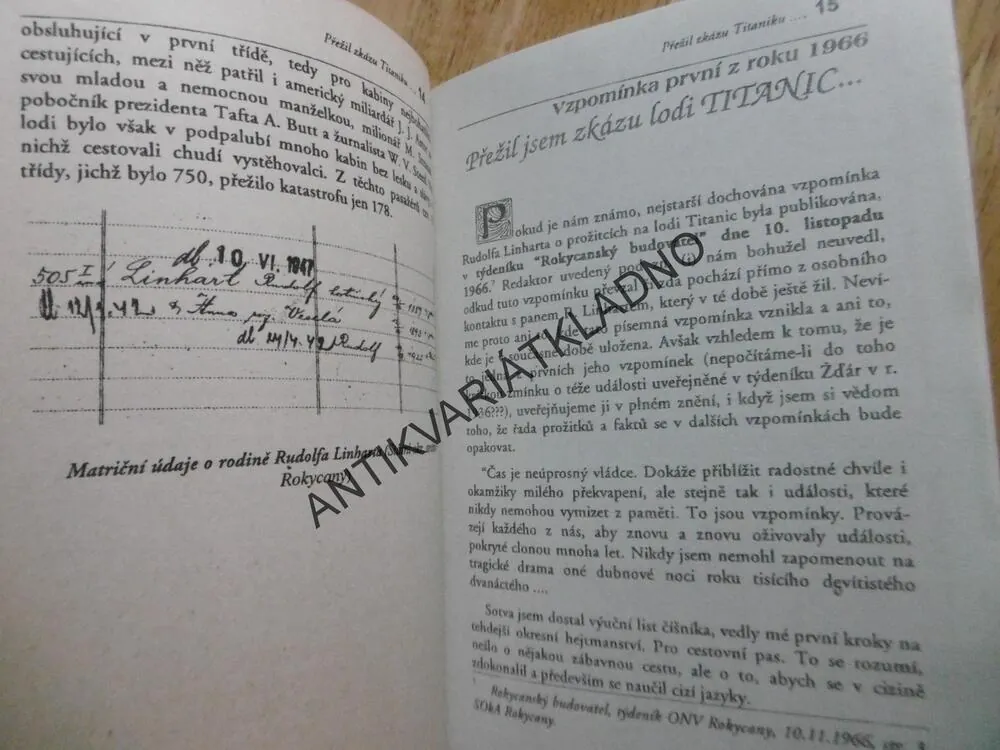 Přežil zkázu Titaniku ... 14
obsluhující v první třídě, tedy pro kabiny
cestujících, mezi něž patřil i americký miliardář J. J.
svou mladou a nemocnou manželkou, milionář M.
pobočník prezidenta Tafta A. Butt a žurnalista W. V.
lodi bylo však v podpalubí mnoho kabin bez lesku a
nichž cestovali chudí vystěhovalci. Z těchto pasažérů
třídy, jichž bylo 750, přežilo katastrofu jen 178.
10 VI. 1947
505 Linhart Rudolf
42 Anna Veselá
24/4. 42 Rudolf
Matriční údaje o rodině Rudolfa Linharta
Rokycany)
Přežil zkázu Titaniku .... 15
Vzpomínka první z roku 1966
Přežil jsem zkázu lodi TITANIC...
Pokud je nám známo, nejstarší dochována vzpomínka
Rudolfa Linharta o prožitcích na lodi Titanic byla publikována,
v týdeníku "Rokycanský budovatel" dne 10. listopadu
1966.⁷ Redaktor uvedený nám bohužel neuvedl,
odkud tuto vzpomínku převzal či zda pochází přímo z osobního
kontaktu s panem Linhartem, který v té době ještě žil. Neví-
me proto ani to, kde tato písemná vzpomínka vznikla a ani to,
kde je v současné době uložena. Avšak vzhledem k tomu, že je
to jedna z prvních jeho vzpomínek (nepočítáme-li do toho
zmínku o téže události uveřejněné v týdeníku Žďár v r.
1936???), uveřejňujeme ji v plném znění, i když jsem si vědom
toho, že řada prožitků a faktů se v dalších vzpomínkách bude
opakovat.
"Čas je neúprosný vládce. Dokáže přiblížit radostné chvíle i
okamžiky milého překvapení, ale stejně tak i události, které
nikdy nemohou vymizet z paměti. To jsou vzpomínky. Prová-
zejí každého z nás, aby znovu a znovu oživovaly události,
pokryté clonou mnoha let. Nikdy jsem nemohl zapomenout na
tragické drama oné dubnové noci roku tisícího devítistého
dvanáctého ....
Sotva jsem dostal výuční list číšníka, vedly mé první kroky na
tehdejší okresní hejtmanství. Pro cestovní pas. To se rozumí,
nešlo o nějakou zábavnou cestu, ale o to, abych se v cizině
zdokonalil a především se naučil cizí jazyky.
Rokycanský budovatel, týdeník ONV Rokycany, 10.11.1966, str.
SOkA Rokycany.
ANTIKVARIÁTKLADNO